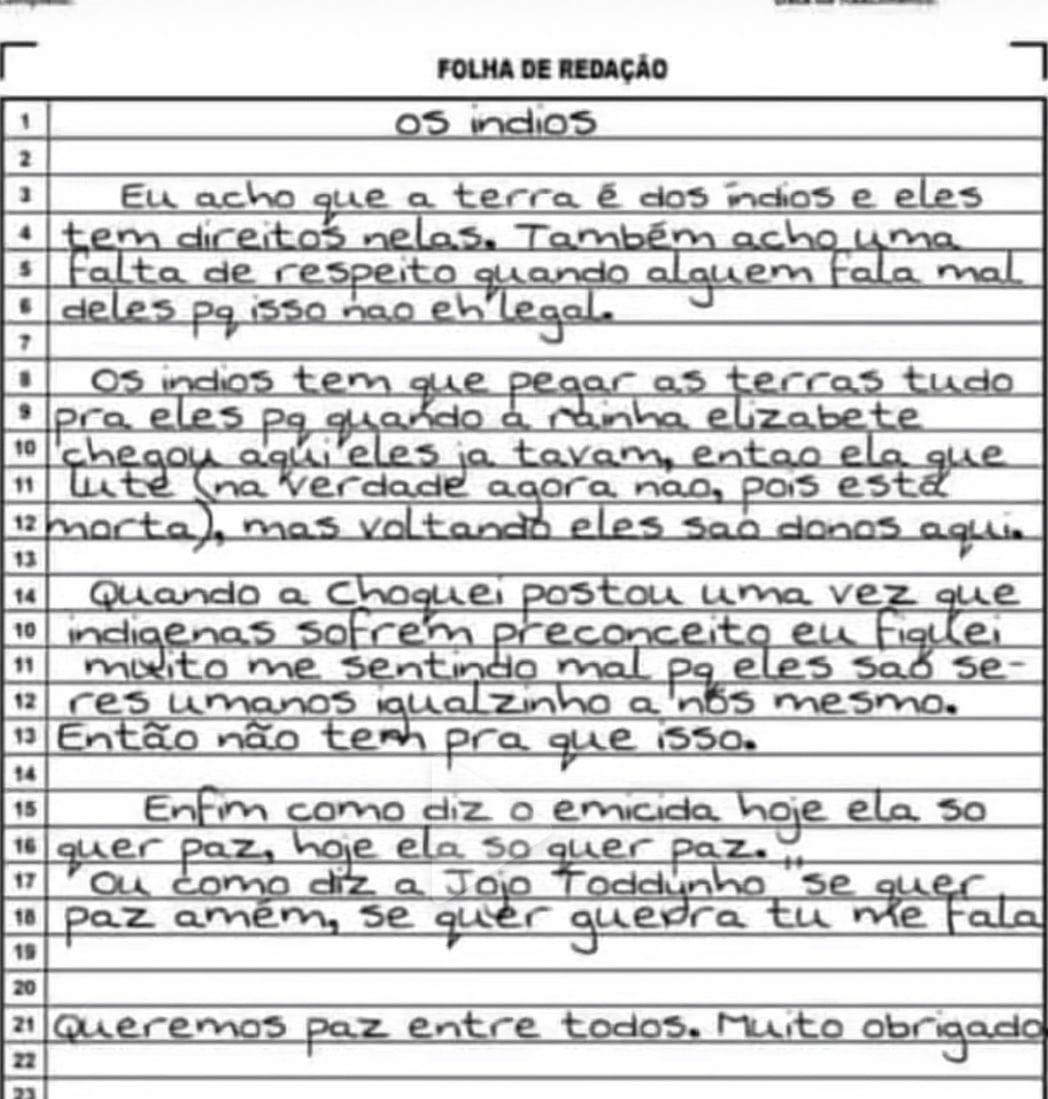 FOLHA DE REDAÇÃO
1 os indios
2
3 Eu acho que a terra é dos índios e eles
4 tem direitos nelas. Também acho uma
5 falta de respeito quando alguem fala mal
6 deles pq isso nao eh legal.
7
8 Os indios tem que pegar as terras tudo
9 pra eles pq quando a rainha elizabete
10 chegou aqui eles ja tavam, entao ela que
11 lute (na verdade agora nao, pois está
12 morta), mas voltando eles sao donos aqui.
13
14 Quando a Choquei postou uma vez que
10 indigenas sofrem preconceito eu fiquei
11 muito me sentindo mal pq eles sao se-
12 res umanos igualzinho a nós mesmo.
13 Então não tem pra que isso.
14
15 Enfim como diz o emicida hoje ela so
16 quer paz, hoje ela so quer paz.
17 Ou como diz a Jojo Toddynho "se quer
18 paz amém, se quer guerra tu me fala
19
20
21 Queremos paz entre todos. Muito obrigado
22
23